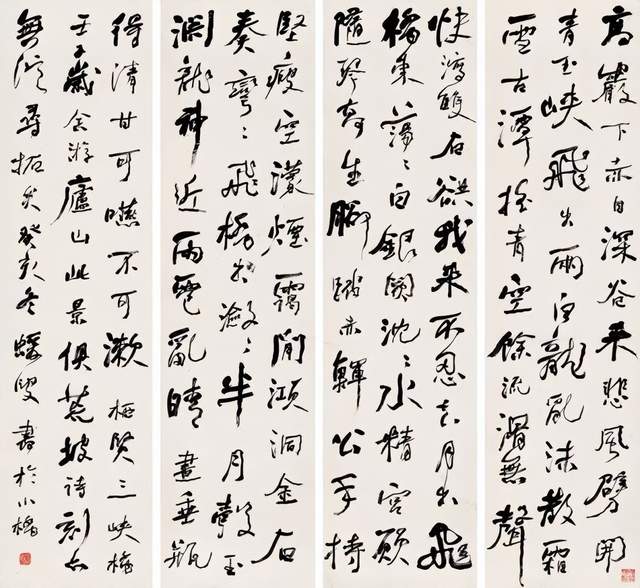 高巖下赤日深谷來悲風劈開
青玉峽飛出兩白龍亂沫散霜
雪古潭搖青空餘流滑無聲
快瀉雙石谼我來不忍去月出飛
橋東蕩〻白銀闕沈〻水精宮願
隨琴高生腳踏赤鯶公手持
堅瘦空濛煙靄間澒洞金石
奏彎〻飛橋出瀲〻半月彀玉
淵龍神近雨雹亂晴晝垂瓶
得清甘可嚥不可漱 栖賢三峽橋
壬子歲余游廬山此景俱荒坡詩刻亦
無從尋拓矣癸亥冬叟書於小